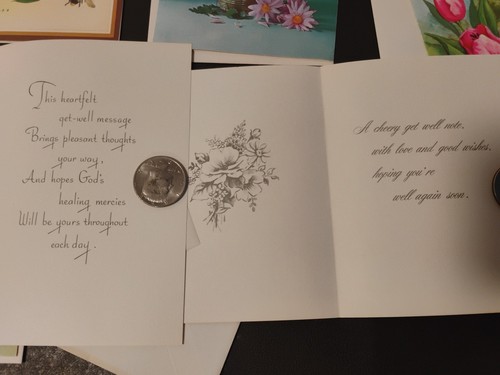 This heartfelt
get-well message
Brings pleasant thoughts
your way,
And hopes God's
healing mercies
Will be yours throughout
each day.
A cheery get well note,
with love and good wishes,
hoping you're
well again soon.